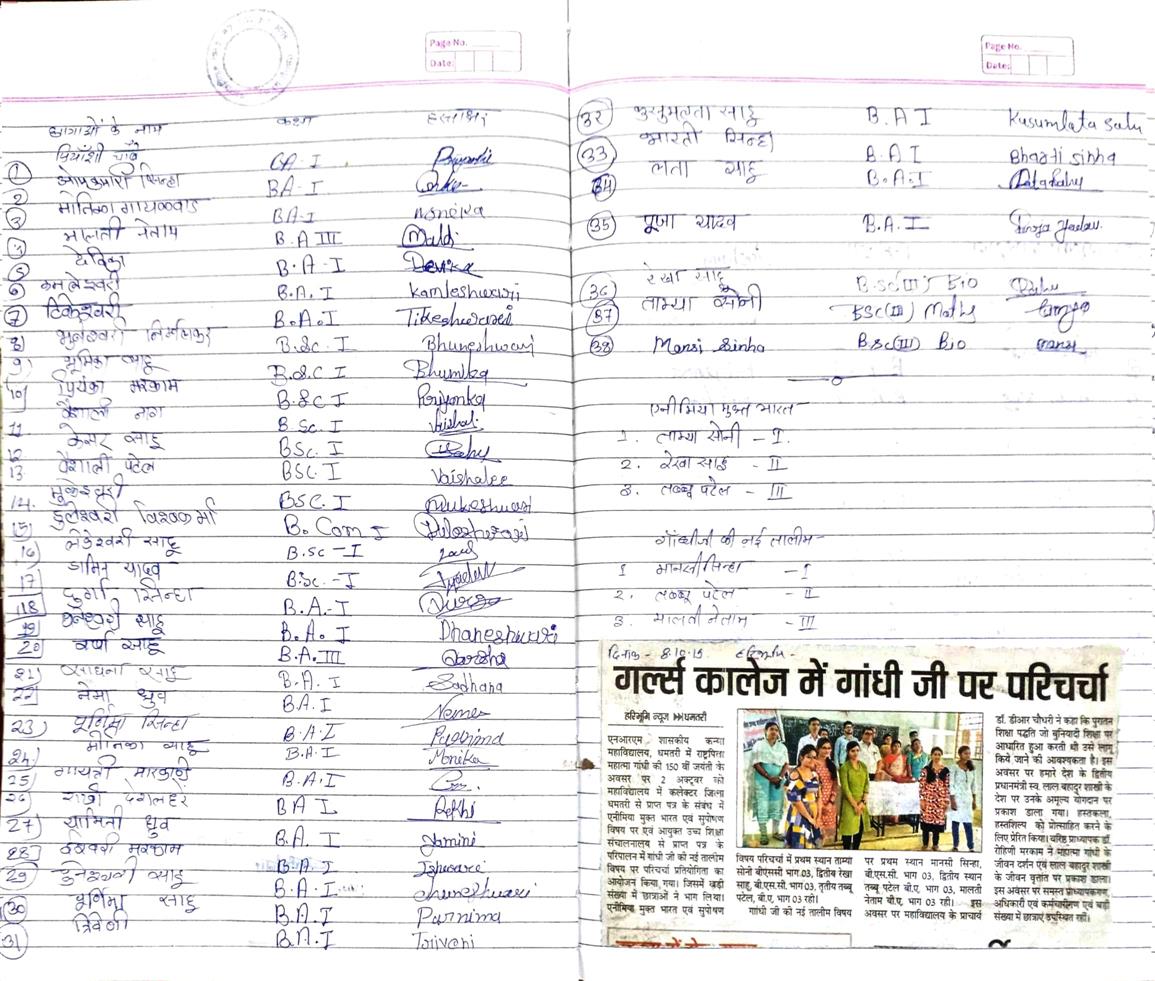 Page No.
Date:
छात्राओं के नाम कक्षा हस्ताक्षर
1 प्रियाँशी चौबे BA-I Priyanshi
2 ओमकुमारी सिन्हा BA-I
3 मोनिका गायकवाड BA-I Monika
4 मालती नेताम B.A III Malti
5 देविका B.A-I Devika
6 कमलेश्वरी B.A.I Kamleshwari
7 टिकेश्वरी B.A.I Tikeshwari
8 भुनेश्वरी निर्मलकर B.Sc.I Bhuneshwari
9) भूमिका साहू B.Sc I Bhumika
10) प्रियंका मरकाम B.Sc I Priyanka
11 वैशाली नाग B Sc. I Vaishali
12 केसर साहू BSc. I Sahu
13 वैशाली पटेल BSC. I Vaishalee
14. मुकेश्वरी BSC. I Mukeshwari
15) डुलेश्वरी विश्वकर्मा B.Com I Duleshwari
16) लोकेश्वरी साहू B.sc-I
17 डामिन यादव B.Sc.-I
18 दुर्गा सिन्हा B.A.-I Durga
19 धनेश्वरी साहू B.A.I Dhaneshwari
20 वर्षा साहू B.A.III Varsha
21) साधना साहू B.A.I Sadhana
22 नेमा ध्रुव B.A.I Nema
23) पूर्णिमा सिन्हा B.A.I Purnima
24) मोनिका साहू B.A.I Monika
25) गायत्री मारकण्डे B.A.I
26 राखी देवलहरे BA I Rakhi
27) यामिनी ध्रुव B.A.I Yamini
28) ईश्वरी मरकाम B.A.I Ishwari
29 डुनेश्वरी साहू B.A.I
30 पूर्णिमा साहू B.A.I Purnima
31 त्रिवेणी B.A.I Triveni
Page No.
Date:
32 कुसुमलता साहू B.A I Kusumlata Sahu
33 भारती सिन्हा B.A I Bharti sinha
34 लता साहू B.A.I Lata Sahu
35 पूजा यादव B.A.I Puja Yadav.
36 रेखा साहू B.Sc(III) Bio Rekha
37 ताम्या सोनी BSc(III) Maths Tamya
38 Mansi Sinha B.Sc(III) Bio Mansi
एनीमिया मुक्त भारत
1. ताम्या सोनी - I.
2. रेखा साहू - II
3. तब्बू पटेल - III
गाँधीजी की नई तालीम
1 मानसी सिन्हा - I
2. तब्बू पटेल - II
3. मालती नेताम - III
दिनांक - 8.10.19 हरिभूमि -
गर्ल्स कालेज में गांधी जी पर परिचर्चा
हरिभूमि न्यूज ▸▸ धमतरी
एनआरएम शासकीय कन्या
महाविद्यालय, धमतरी में राष्ट्रपिता
महात्मा गांधी की 150 वीं जयंती के
अवसर पर 2 अक्टूबर को
महाविद्यालय में कलेक्टर जिला
धमतरी से प्राप्त पत्र के संबंध में
एनीमिया मुक्त भारत एवं सुपोषण
विषय पर एवं आयुक्त उच्च शिक्षा
संचालनालय से प्राप्त पत्र के
परिपालन में गांधी जी की नई तालीम
विषय पर परिचर्चा प्रतियोगिता का
आयोजन किया गया। जिसमें बड़ी
संख्या में छात्राओं ने भाग लिया।
एनीमिया मुक्त भारत एवं सुपोषण
विषय परिचर्चा में प्रथम स्थान ताम्या
सोनी बीएससी भाग.03, द्वितीय रेखा
साहू, बी.एस.सी. भाग 03, तृतीय तब्बू
पटेल, बी.ए. भाग 03 रहीं।
गांधी जी की नई तालीम विषय
पर प्रथम स्थान मानसी सिन्हा,
बी.एस.सी. भाग 03, द्वितीय स्थान
तब्बू पटेल बी.ए. भाग 03, मालती
नेताम बी.ए. भाग 03 रही। इस
अवसर पर महाविद्यालय के प्राचार्य
डॉ. डीआर चौधरी ने कहा कि पुरातन
शिक्षा पद्धति जो बुनियादी शिक्षा पर
आधारित हुआ करती थी उसे लागू
किये जाने की आवश्यकता है। इस
अवसर पर हमारे देश के द्वितीय
प्रधानमंत्री स्व. लाल बहादुर शास्त्री के
देश पर उनके अमूल्य योगदान पर
प्रकाश डाला गया। हस्तकला,
हस्तशिल्प को प्रोत्साहित करने के
लिए प्रेरित किया। वरिष्ठ प्राध्यापक डॉ.
रोहिणी मरकाम ने महात्मा गांधी के
जीवन दर्शन एवं लाल बहादुर शास्त्री
के जीवन वृत्तांत पर प्रकाश डाला।
इस अवसर पर समस्त प्राध्यापकगण,
अधिकारी एवं कर्मचारीगण एवं बड़ी
संख्या में छात्राएं उपस्थित रहीं।